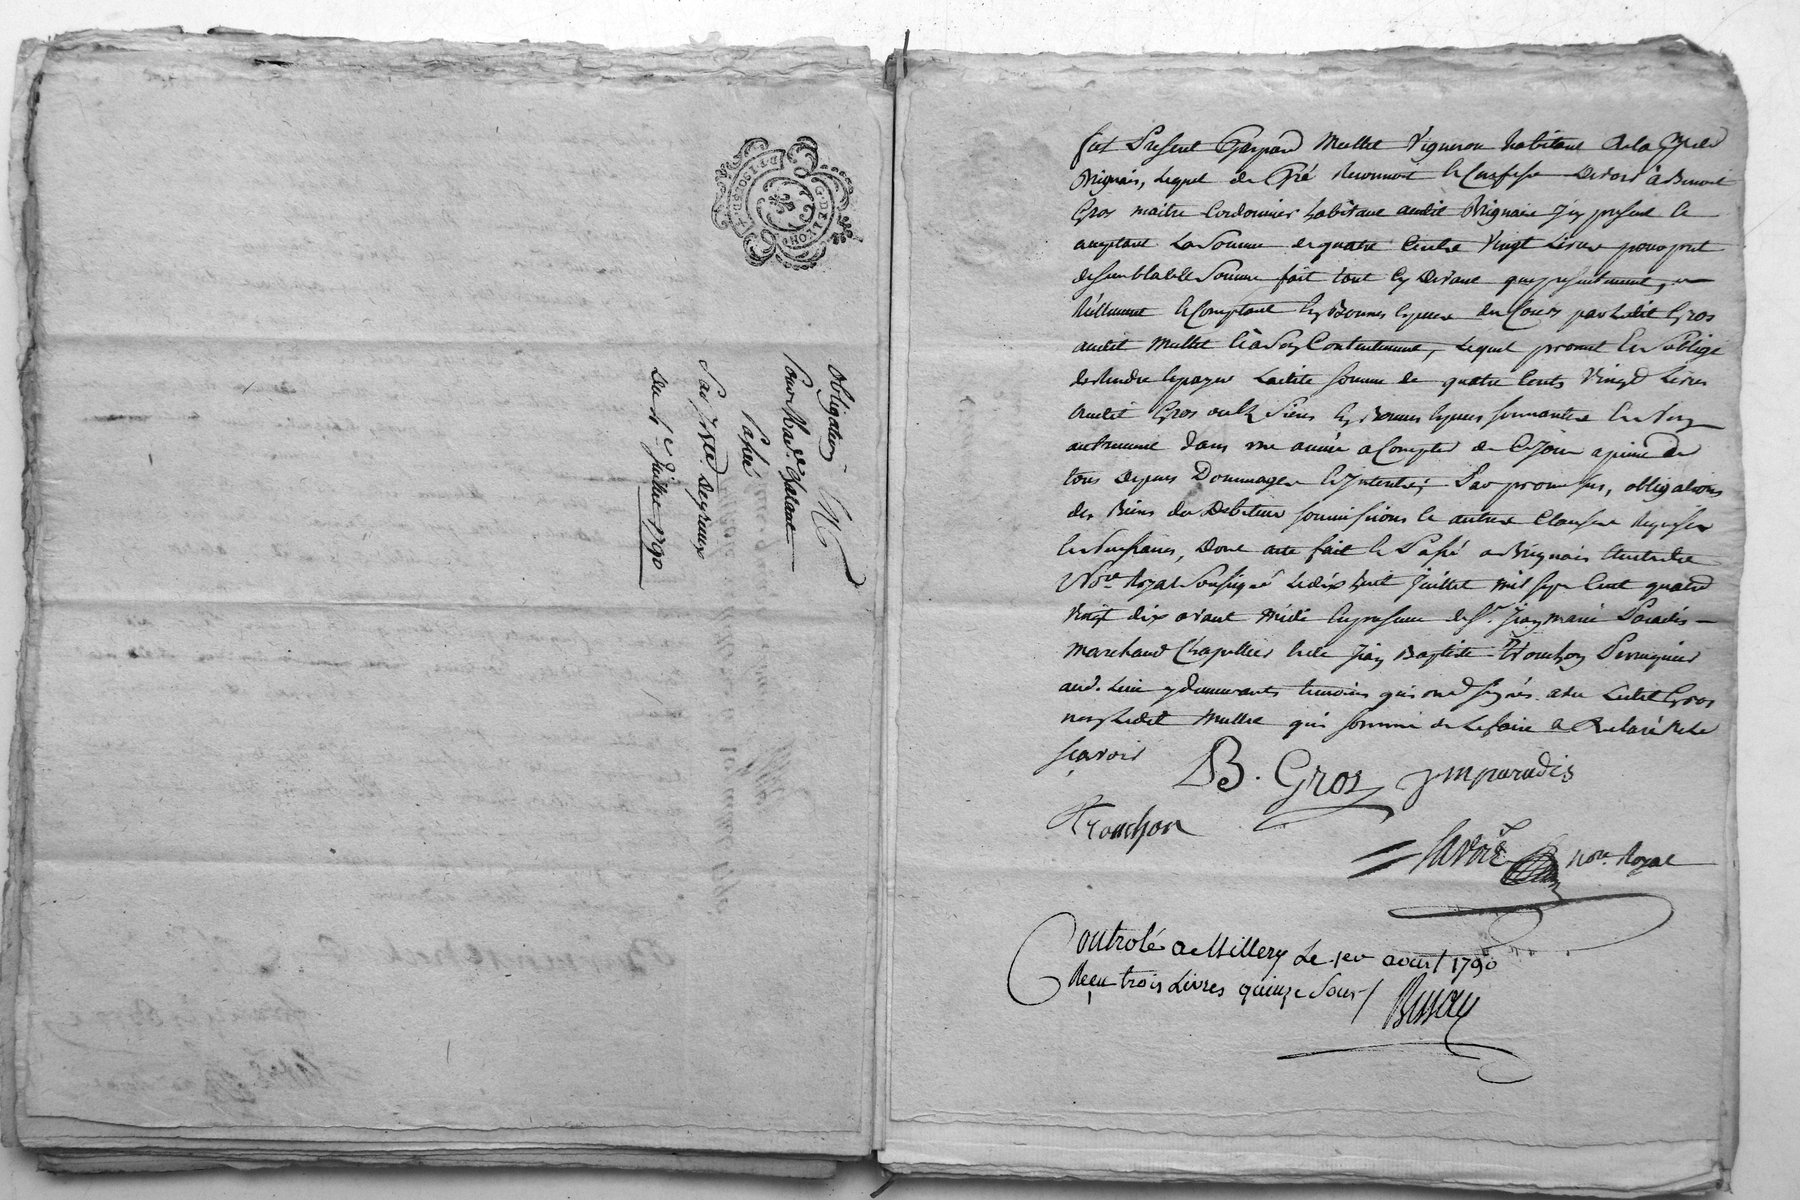 obligation
Pour Mad.e Chatane
Passée
Par Dezeraux
Du 4e Juillet 1790
G. DE LYON
fut Présent Gaspard Mullet Vigneron habitant de la
Brignais, lequel de Gré Reconnoit & Confesse Devoir à Benoit
Gros maitre Cordonnier habitant audit Brignais Icy présent &
acceptant La Somme de quatre Cents Vingt Livres pour pret
de semblable Somme fait tout cy Devant que présentement,
Réellement & Comptant En Bonnes Espèces du Cours par Ledit Gros
audit Mullet à Son Contentement, Lequel promet & S'oblige
de Rendre & payer Ladite somme de quatre Cents Vingt Livres
audit Gros ou aux Siens En Bonnes Espèces sonnantes & Non
autrement dans une année a Compter de Ce Jour a peine de
tous Depens Dommages & Interets; Par promesses, obligations
des Biens du Debiteur soumissions & autres Clauses
Nécessaires, Dont acte fait & Passé a Brignais
No.re Royal Soussigné Le dix huit Juillet mil sept Cent quatre
Vingt dix avant Midi En présence de S.r Jean Marie Paradis
Marchand Chapellier & de Jean Baptiste Tronchon Perruquier
aud. Lieu y demeurants temoins qui ont signés avec Ledit Gros
non Ledit Mullet qui sommé de Le faire a Declaré ne Le
sçavoir
B. Gros J m paradis
Tronchon
No.re Royal
Controlé a Millery Le 1er août 1790
Reçu trois Livres quinze Sous